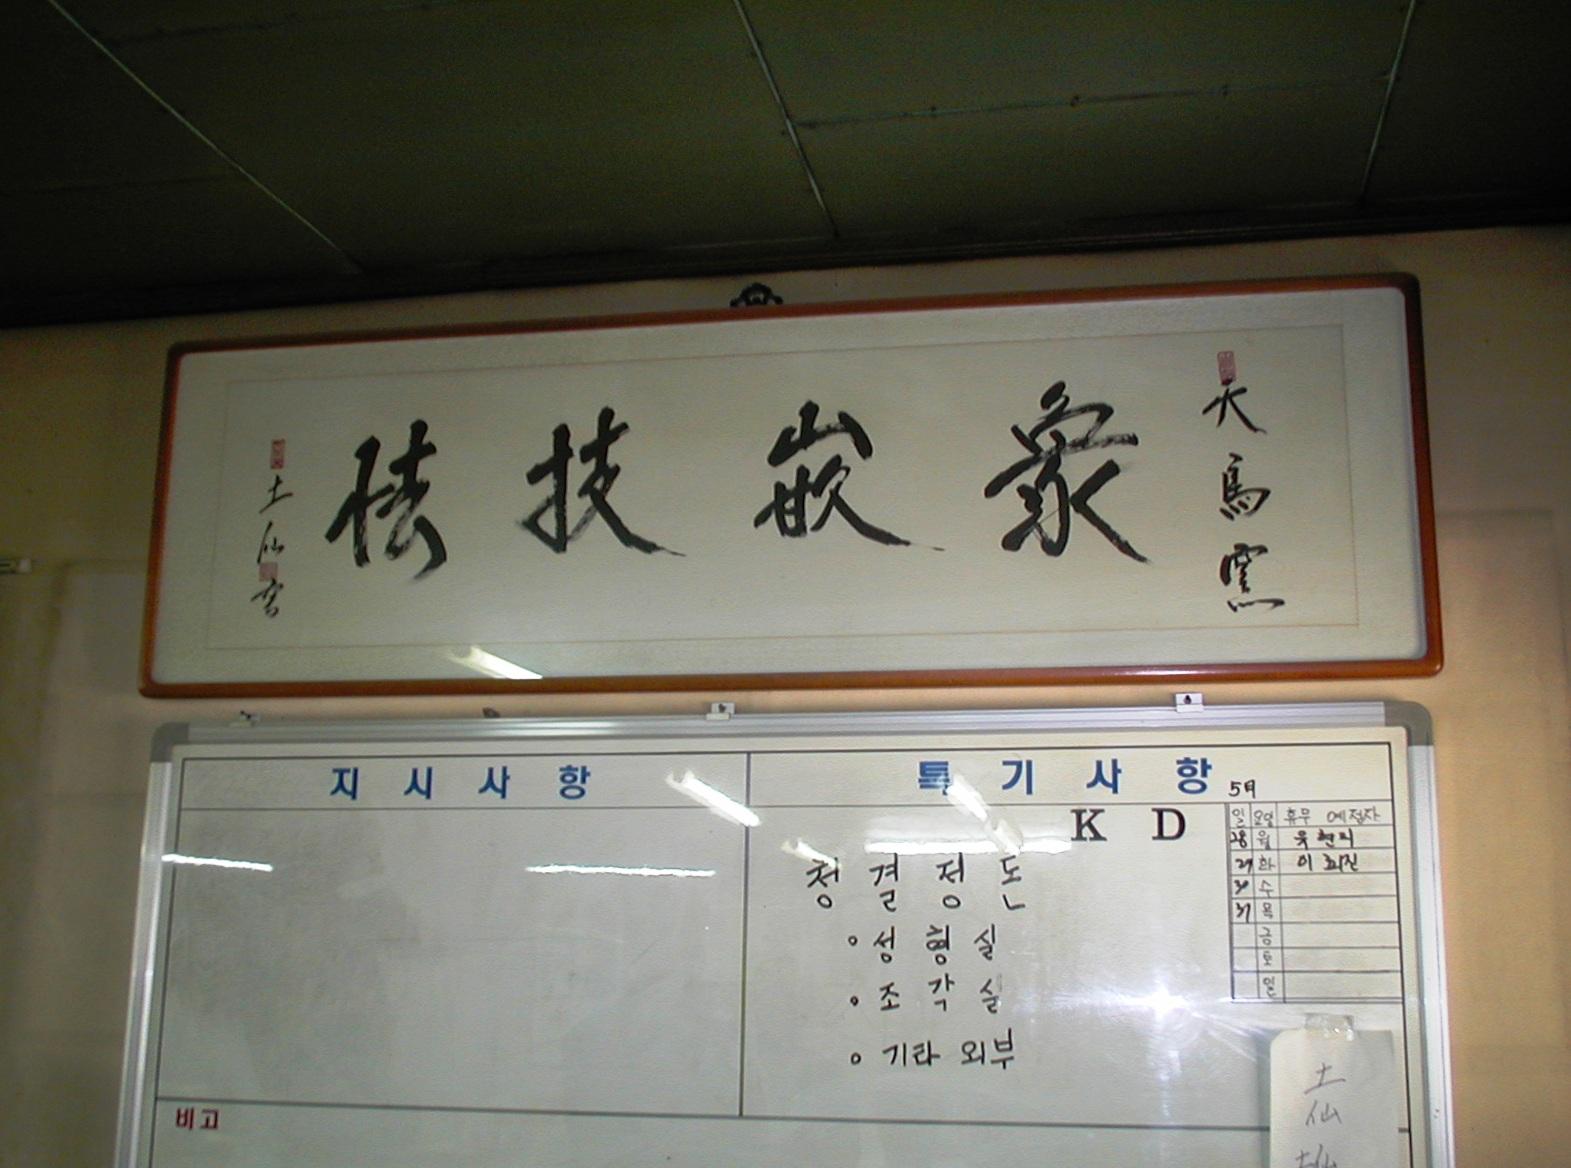 天馬窯
象嵌技
土仙書
지시사항
특기사항
5月
K D
청결정돈
일 요일 휴무 예정자
28 월
29 화 이희진
30 수
31 목
금
토
일
◦ 성형실
◦ 조각실
◦ 기타 외부
비고
土
仙